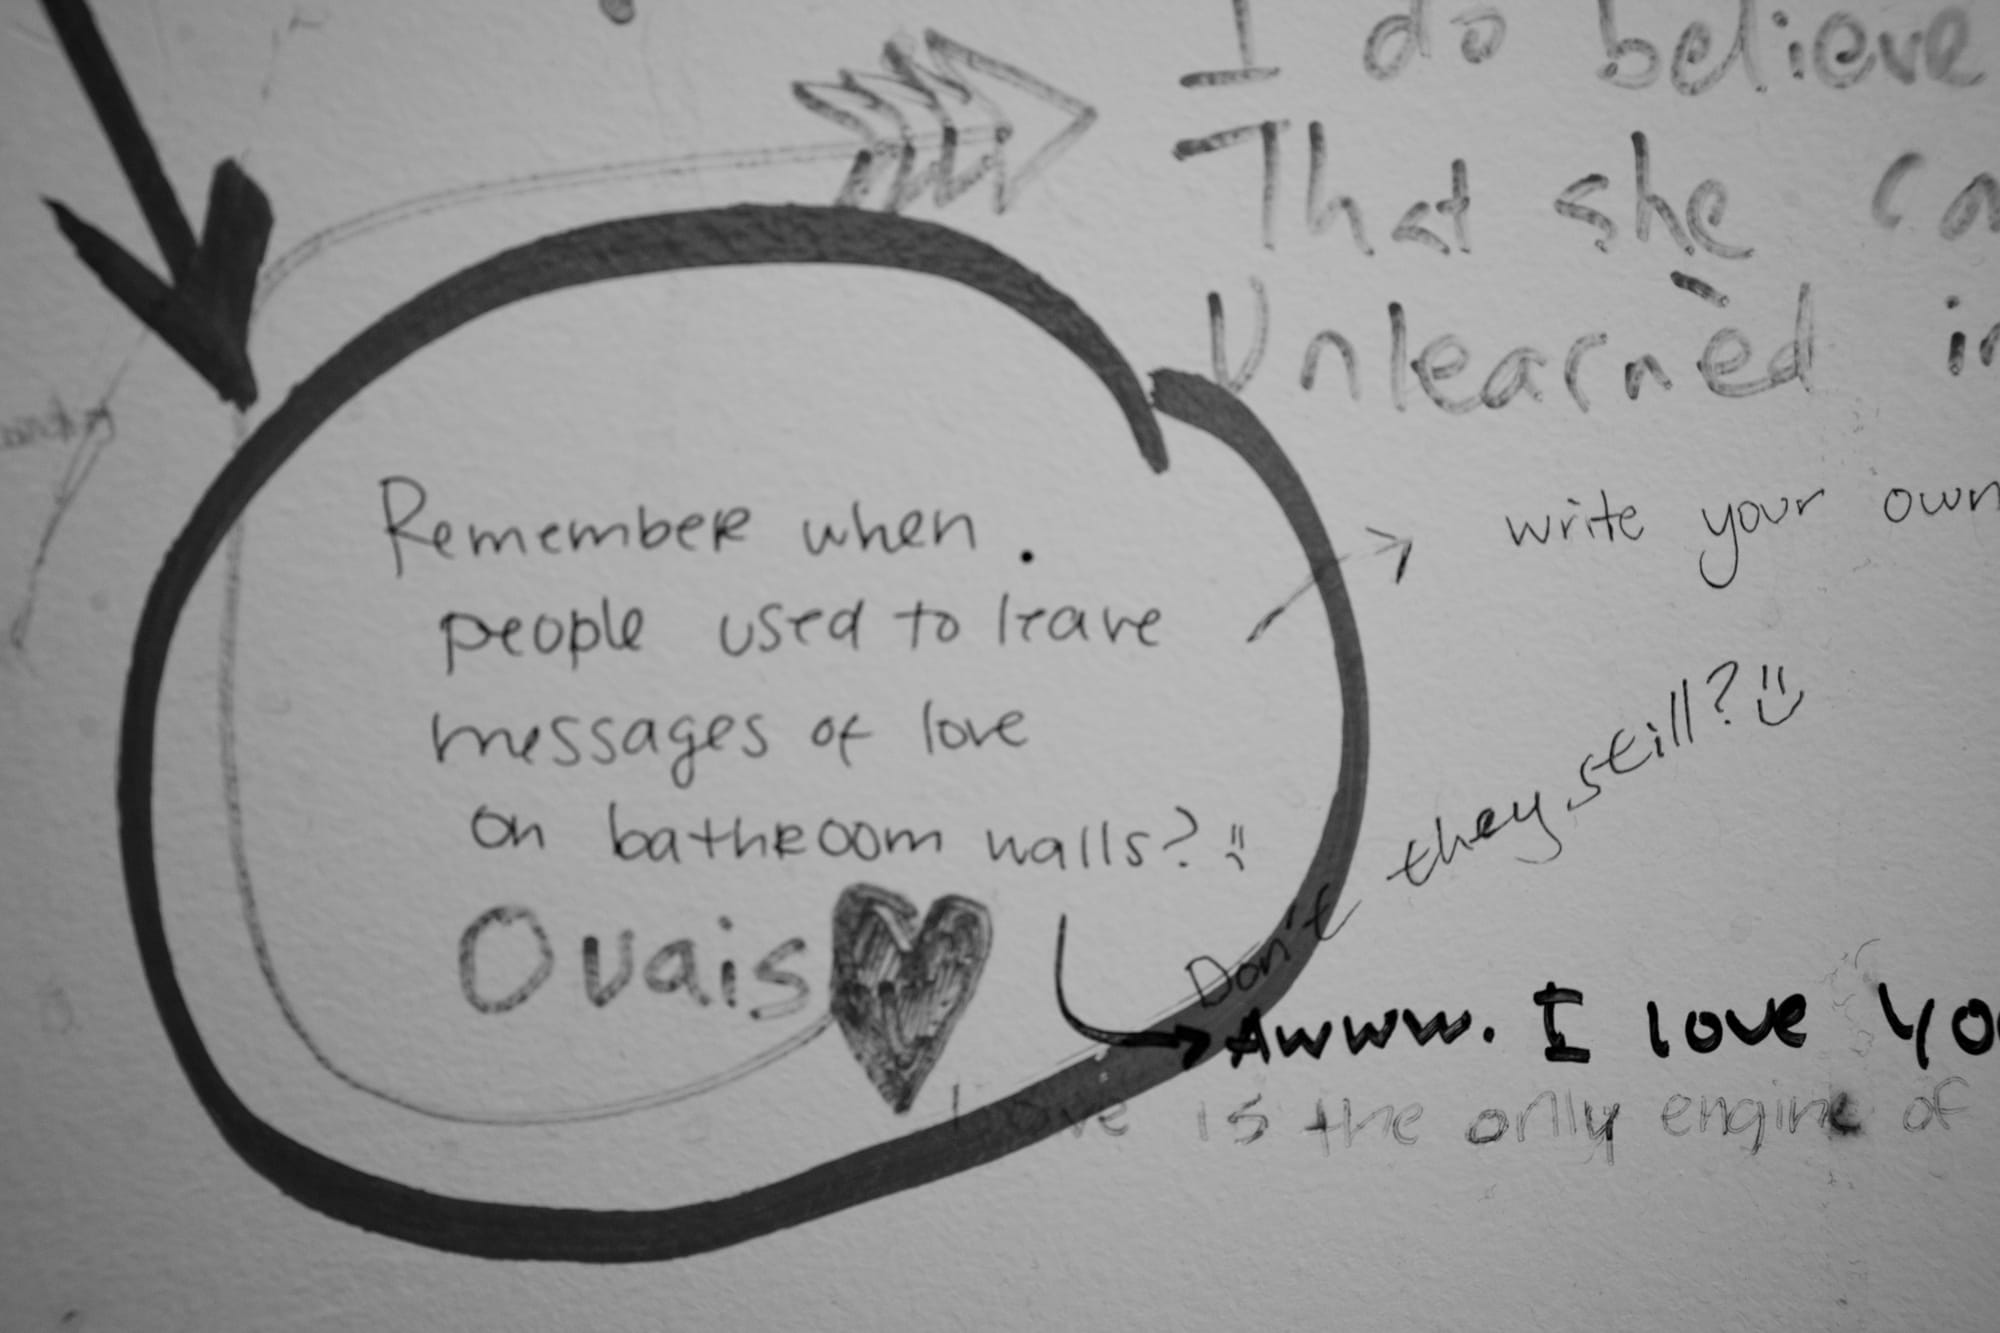 I do believe
That she
Unlearned
Remember when
people used to leave
messages of love
on bathroom walls?
Ouais
write your own
Don't they still?
Awww. I love
Love is the only engine of